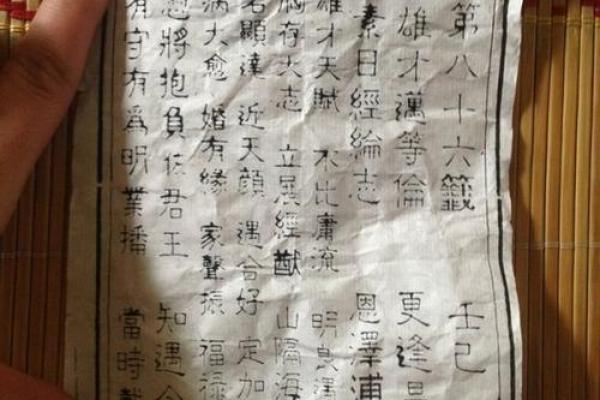 第八十六籤 壬己
雄才邁等倫 更逢
素日經綸志 恩澤浦
才天賦 不比庸流 明良
存大志 立展經猷 山隔海
名顯達 近天顏 遇合好 定加
病大愈 婚有緣 家聲振 福祿
將抱負佐君王 知遇
有守有爲明業播 當時